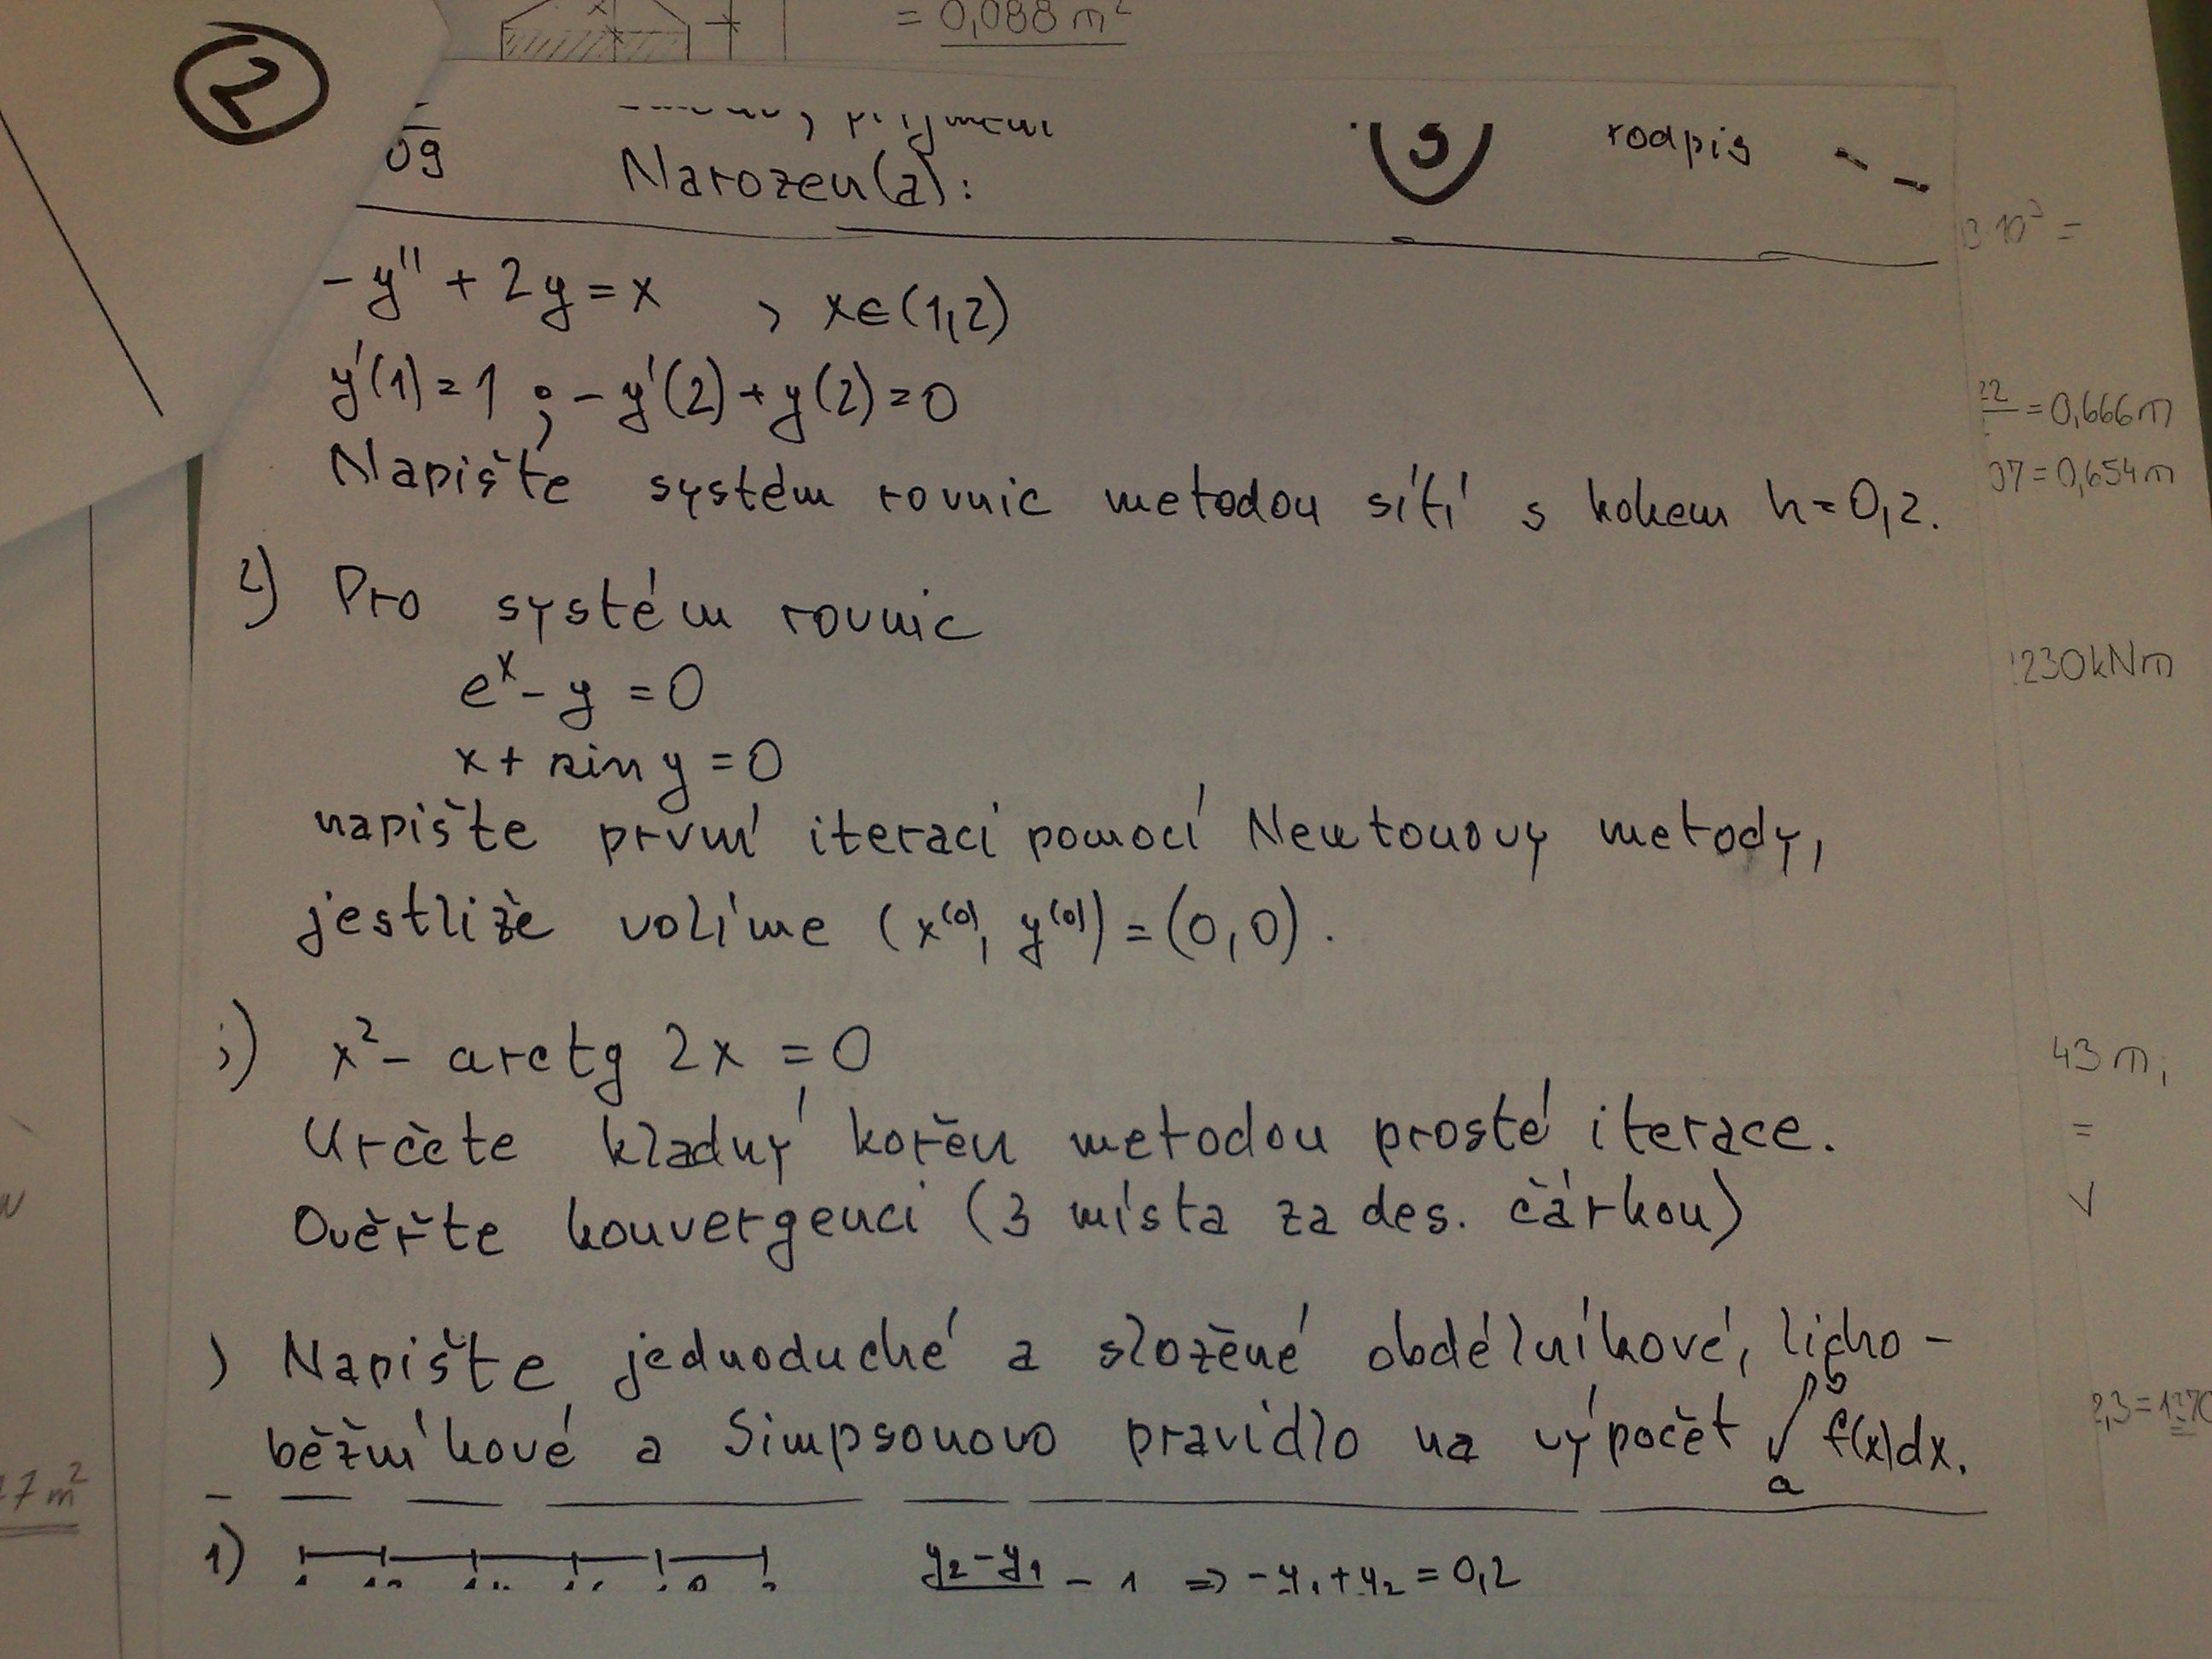 = 0,088 m²
2
09
Narozen(a):
5
13·10³ =
-y'' + 2y = x , x∈(1,2)
y'(1) = 1 ; -y'(2) + y(2) = 0
22 = 0,666m
Napište systém rovnic metodou sítí s krokem h = 0,2.
37 = 0,654m
2) Pro systém rovnic
eˣ - y = 0
230kNm
x + sin y = 0
napište první iteraci pomocí Newtonovy metody,
jestliže volíme (x⁽⁰⁾, y⁽⁰⁾) = (0,0).
) x² - arctg 2x = 0
43 m,
Určete kladný kořen metodou prosté iterace.
=
Ověřte konvergenci (3 místa za des. čárkou)
) Napište jednoduché a složené obdélníkové, licho-
2,3 = 1370
běžníkové a Simpsonovo pravidlo na výpočet ∫ₐᵇ f(x)dx.
7 m²
1) y₂ - y₁ = 1 ⇒ -y₁ + y₂ = 0,2